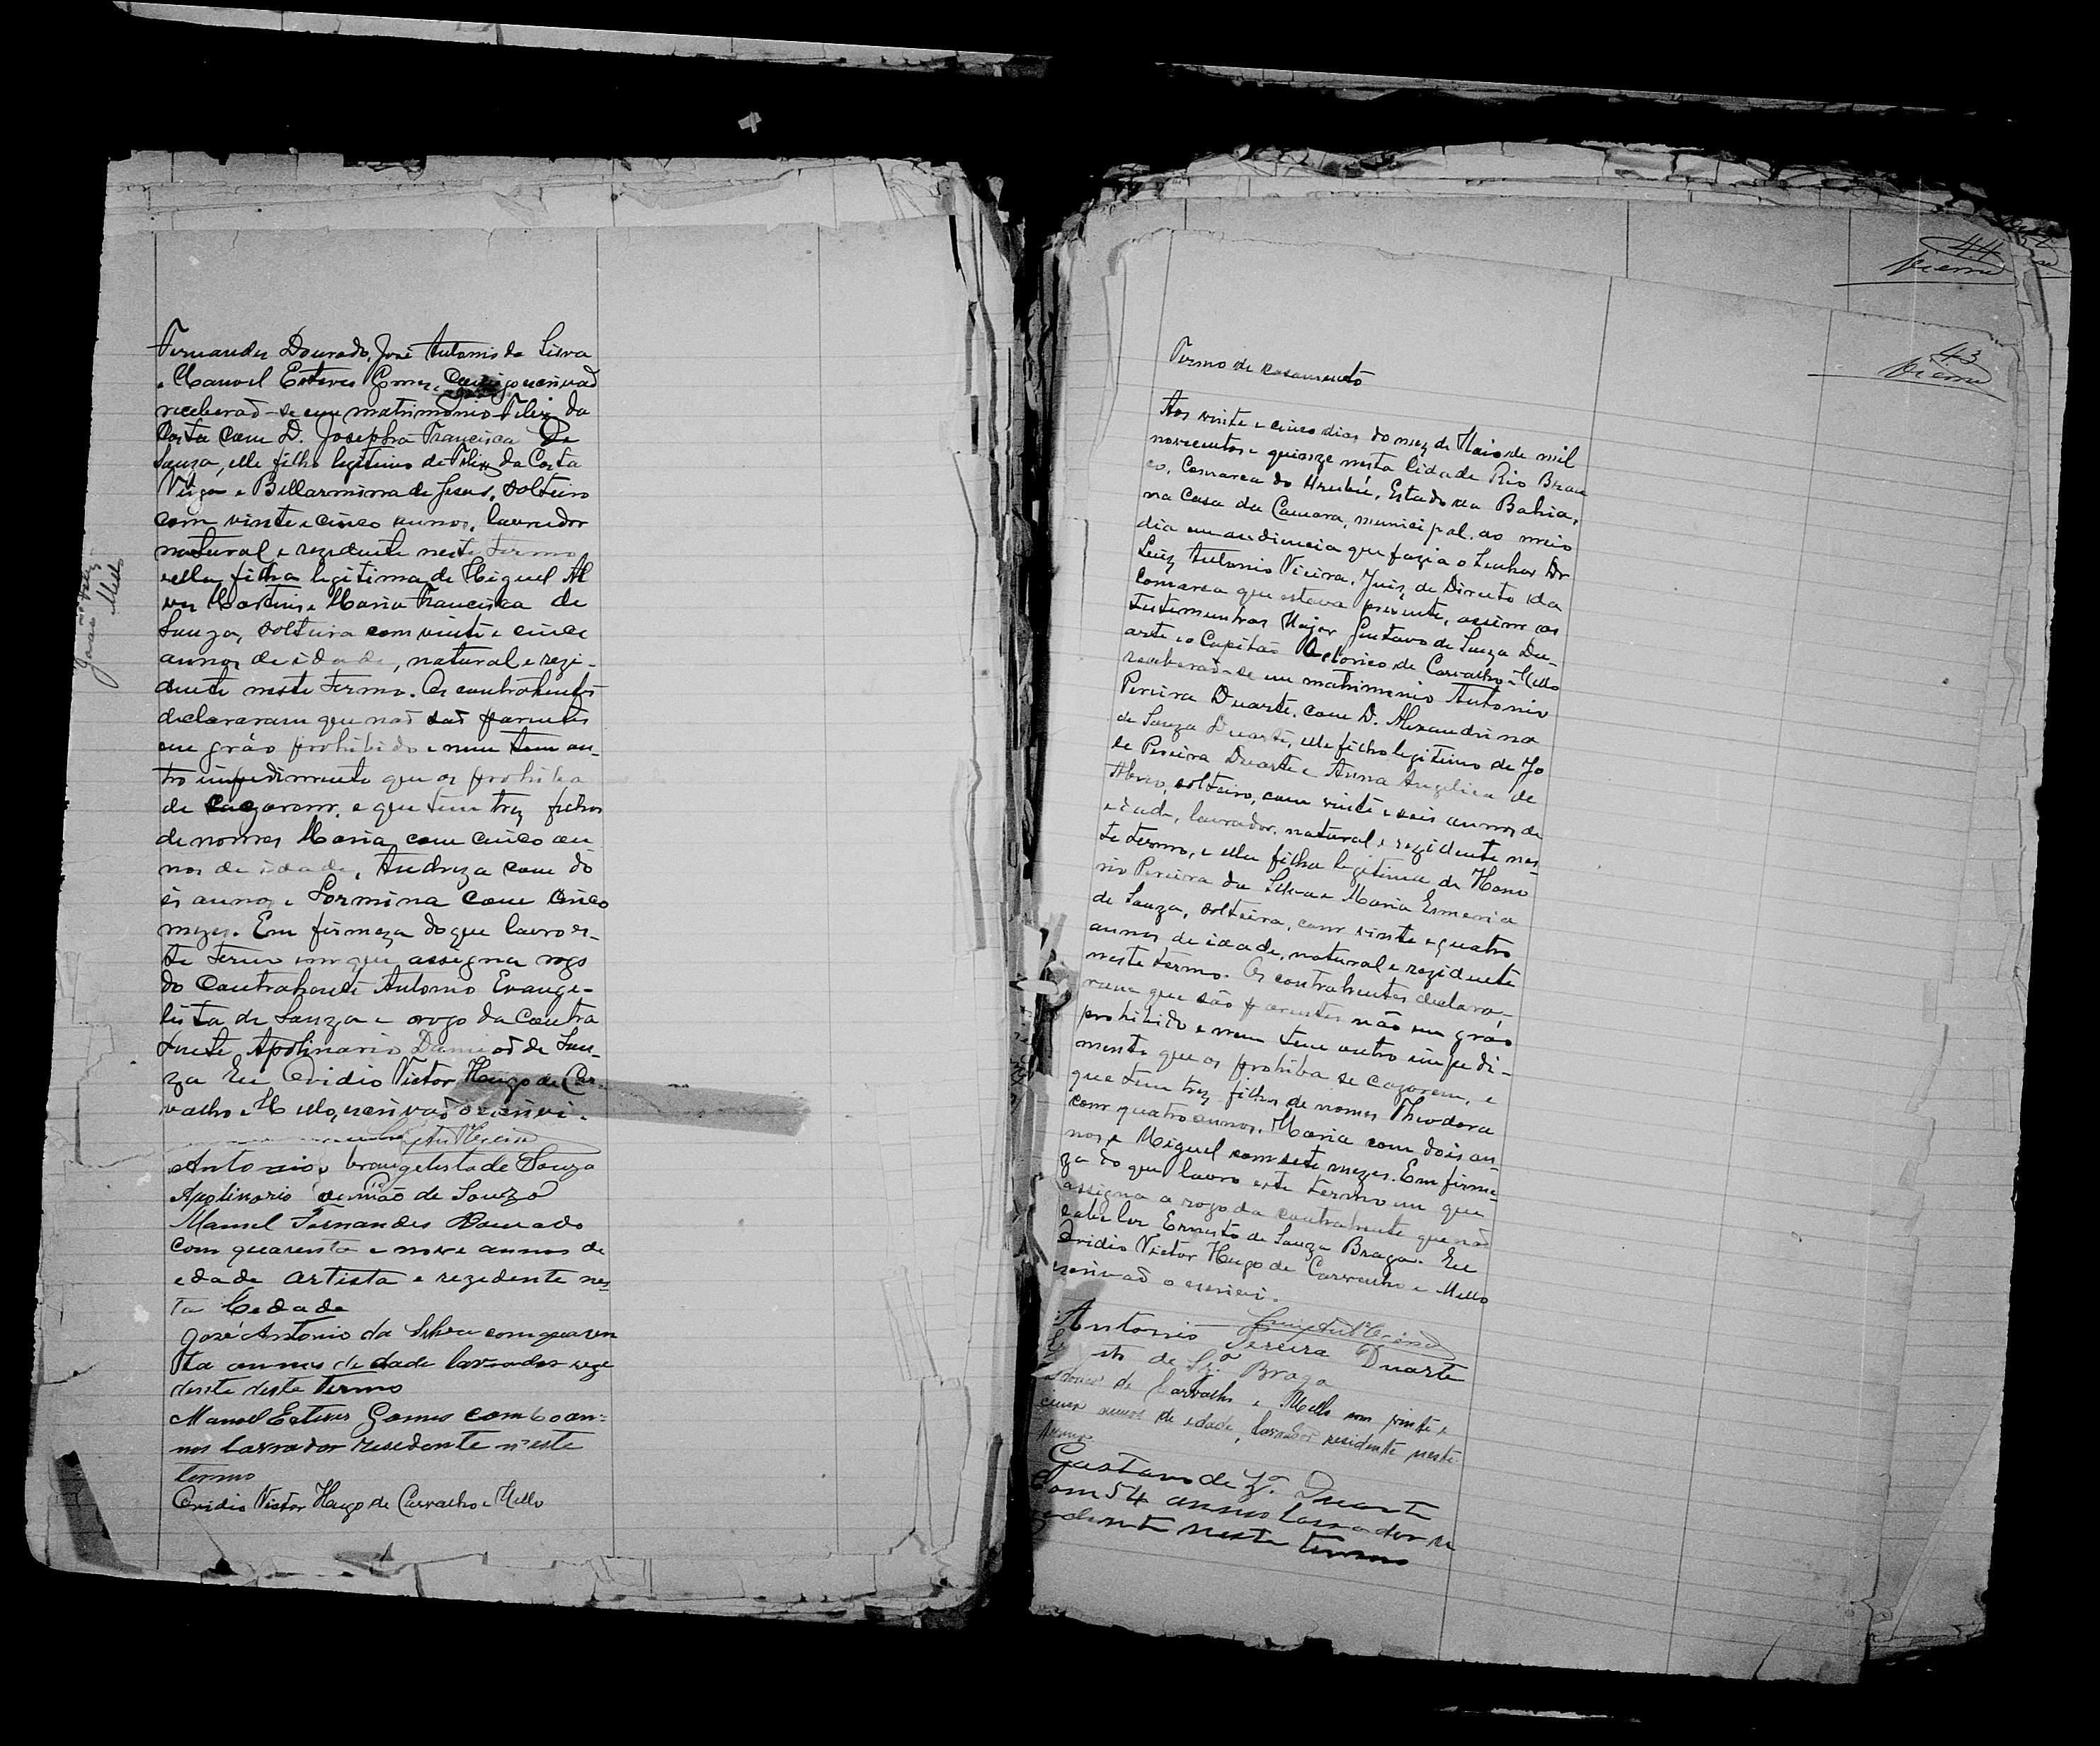 Fernandes Dourado, José Antonio da Silva
e Manoel Esteves Gomes, Comigo escrivaõ
receberaõ-se em matrimonio Felix da
Costa com D. Josepha Francisca de
Souza, elle filho legitimo de Felix da Costa
Veiga e Bellarmina de Jesus, solteiro
com vinte e cinco annos, lavrador
natural e rezidente neste termo
e ella filha legitima de Miguel Al
ves Martins e Maria Francisca de
Souza, solteira com vinte e cinco
annos de idade, natural e rezi-
dente neste termo. Os contrahentes
declararam que naõ saõ parentes
em gráo prohibido e nem tem ou-
tro impedimento que os prohiba
de cazarem, e que tem trez filhos
de nomes Maria com cinco an
nos de idade, Andreza com do
is annos e Sormina com cinco
mezes. Em firmeza do que lavro es-
te termo em que assigna rogo
do Contrahente Antonio Evange-
lista de Souza e arogo da Contra
hente Apolinario Damiaõ de Sou-
za Eu Ovidio Victor Hugo de Car-
valho e Mello, escrivaõ o escrevi.
Luiz Antº Vieira
Antonio Evangelista de Souza
Apolinario Damião de Souza
Manoel Fernandes Dourado
com quarenta e nove annos de
edade artista e rezedente nes=
ta Cedade
José Antonio da Silva com quaren
ta annos de edade lavrador reze
dente deste Termo
Manoel Esteves Gomes com 60 an=
nos lavrador resedente n'este
termo
Ovidio Victor Hugo de Carvalho e Mello
Mello
44
Vieira
43
Vieira
Termo de casamento
Aos vinte e cinco dias do mez de Maio de mil
novecentos e quinze nesta Cidade Rio Bran
co, Comarca do Urubú, Estado da Bahia,
na Casa da Camara, municipal, ao meio
dia em audiencia que fazia o Senhor Dr
Luiz Antonio Vieira, Juiz de Direito da
Comarca que estava presente, assim as
testemunhas Major Gustavo de Souza Du-
arte e o Capitaõ de Carvalho e Mello
receberaõ-se em matrimonio Antonio
Pereira Duarte, com D. Alexandrina
de Souza Duarte, elle filho legitimo de Jo
sé Pereira Duarte e Anna Angelica de
Abreo, solteiro, com vinte e seis annos de
idade, lavrador, natural e rezidente nes-
te termo, e ella filha legitima de Hono
rio Pereira da Silva e Maria Esmeria
de Souza, solteira, com vinte e quatro
annos de idade, natural e rezidente
neste termo. Os contrahentes declara-
ram que são parentes não em gráo
prohibido e nem tem outro impedi-
mento que os prohiba se cazarem, e
que tem trez filhos de nomes Theodora
com quatro annos, Maria com dois an
nos, e Miguel com sete mezes. Em firme-
za do que lavro este termo em que
assigna a rogo da contrahente que não
sabe ler Ernesto de Souza Braga. Eu
Ovidio Victor Hugo de Carvalho e Mello
escrivaõ o escrevi.
Luiz Antº Vieira
Antonio Pereira Duarte
de Szª Braga
de Carvalho e Mello com vinte e
cinco annos de edade, lavrador residente neste
termo
Gustavo de Zª. Duarte
Com 54 annos lavrador re
zedente neste termo